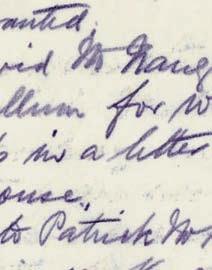 anted.
vid McNaug
llum for W
s in a letter
ouse,
to Patrick McM